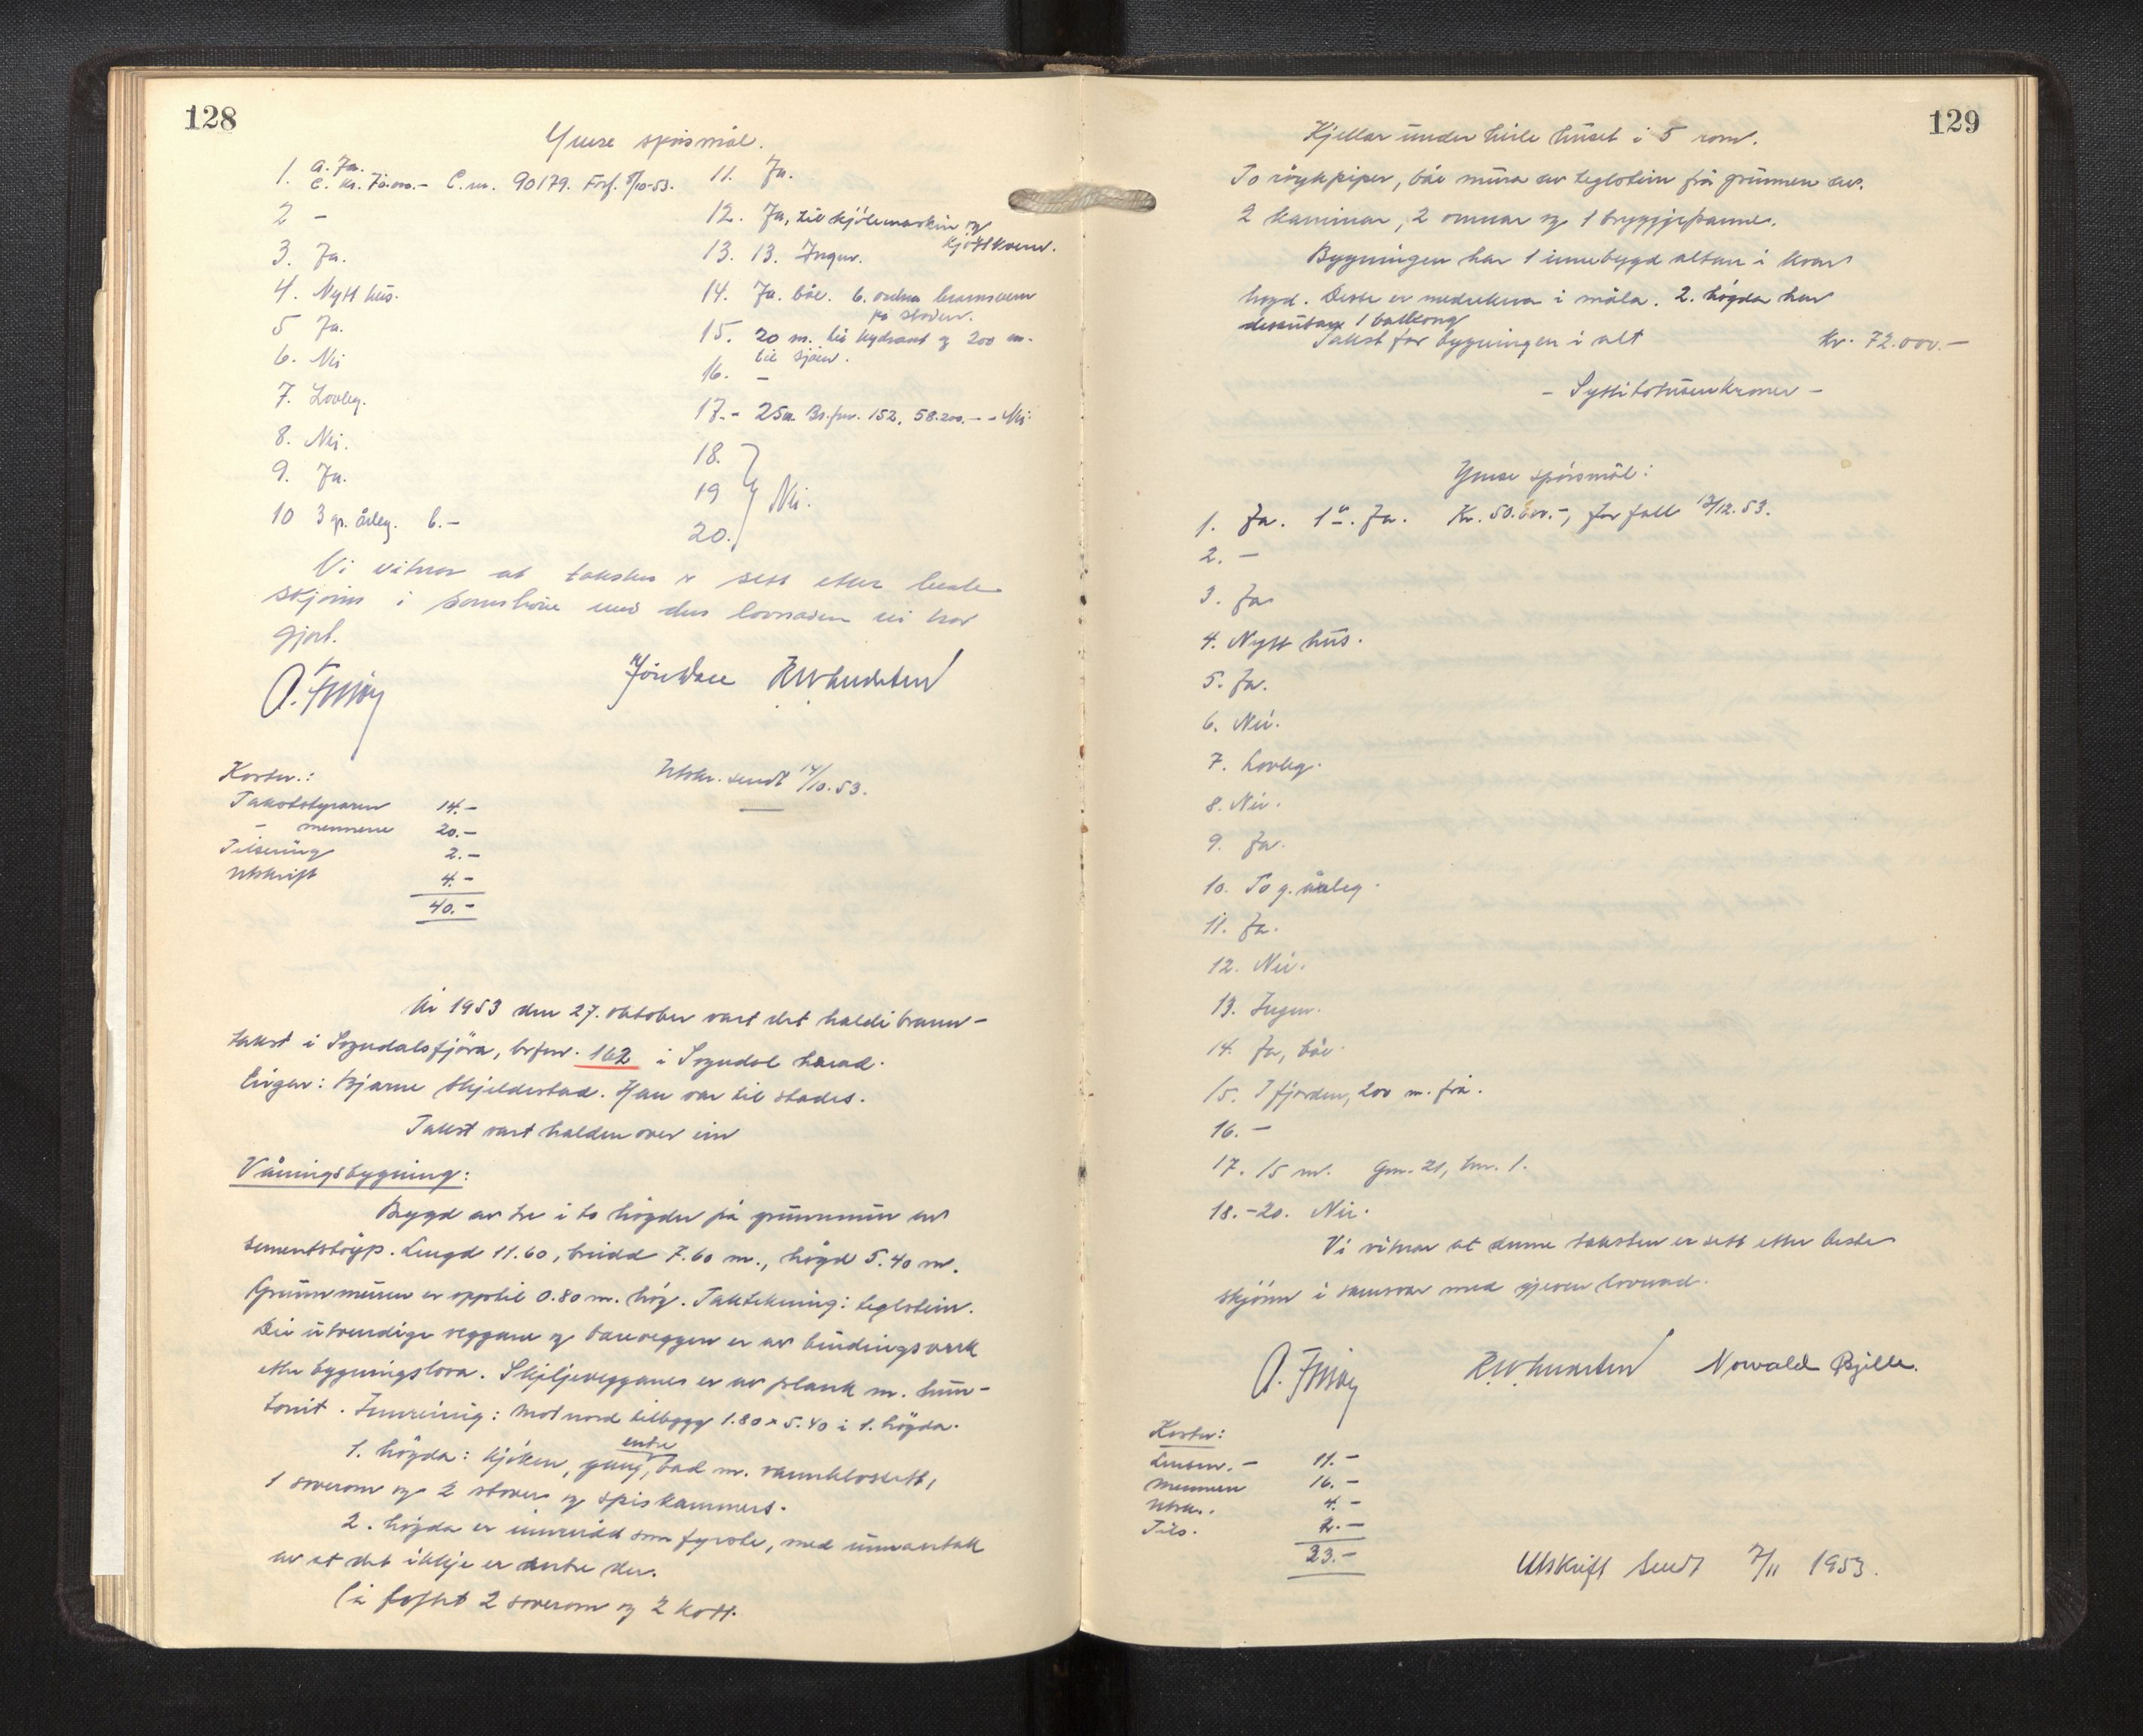 128
Ymse spörsmål.
1. a. Ja.
c. kr. 70.000.- C.nr. 90179. Forf. 5/10-53.
2 -
3. Ja.
4. Nytt hus.
5 Ja.
6. Nei
7. Lovleg.
8. Nei.
9. Ja.
10 3 gr. årleg. 6.-
11. Ja.
12. Ja, til kjölemaskin og
kjöttkvern.
13. 13. Ingen.
14. Ja. båe. 6. ordna brannvern
på staden.
15. 20 m. til hydrant og 200 m.
til sjöen.
16. -
17.- 25 m. Br.fnr. 152, 58.200.- - Nei.
18.
19 Nei.
20.
Vi vitnar at taksten er sett etter beste
skjönn i samhöve med den lovnaden vi har
gjort.
Kostn.:
Takststyraren 14.-
- mennene 20.-
Tilsening 2.-
Utskrift 4.-
40.-
Utskr. sendt 14/10. 53.
År 1953 den 27. oktober vart det halde brann-
takst i Sogndalsfjöra, br.fnr. 162 i Sogndal herad.
Eigar: Bjarne Skjeldestad. Han var til stades.
Takst vart halden over ein
Våningsbygning:
Bygd av tre i to högder på grunnmur av
sementstöyp. Lengd 11.60, breidd 7.60 m., högd 5.40 m.
Grunnmuren er opptil 0.80 m. hög. Taktekning: teglstein.
Dei utvendige veggane og bereveggen er av bindingsverk
etter bygningslova. Skiljeveggane er av plank m. hun-
tonit. Innreiing: Mot nord tilbygg 1.80 x 5.40 i 1. högda.
1. högda: Kjöken, gang, entre, bad m. vannklosett,
1 soverom og 2 stover og spiskammers.
2. högda er innreidd som fyrste, med unnantak
av at det ikkje er entre der.
På loftet 2 soverom og 2 kott.
129
Kjellar under heile huset i 5 rom.
To röykpiper, båe mura av teglstein frå grunnen av.
2 kaminar, 2 omnar og 1 bryggjepanne.
Bygningen har 1 innebygd altan i kvar
högd. Desse er medrekna i måla. 2. högda har
dessutan 1 balkong
Takst for bygningen i alt Kr. 72.000.-
- Syttitotusenkroner -
Ymse spörsmål:
1. Ja. 1a. Ja. Kr. 50.000.-, forfall 13/12.53.
2. -
3. Ja
4. Nytt hus.
5. Ja.
6. Nei.
7. Lovleg.
8. Nei.
9. Ja.
10. To g. årleg.
11. Ja.
12. Nei.
13. Ingen.
14. Ja, båe.
15. I fjorden, 200 m. frå.
16. -
17. 15 m. Gnr. 21, bnr. 1.
18.-20. Nei.
Vi vitnar at denne taksten er sett etter beste
skjönn i samsvar med gjeven lovnad.
Norvald Bjelle.
Kostn:
Lensm. - 11.-
Mennene 16.-
Utskr. 4.-
Tils. 2.-
23.-
Utskrift sendt 7/11 1953.